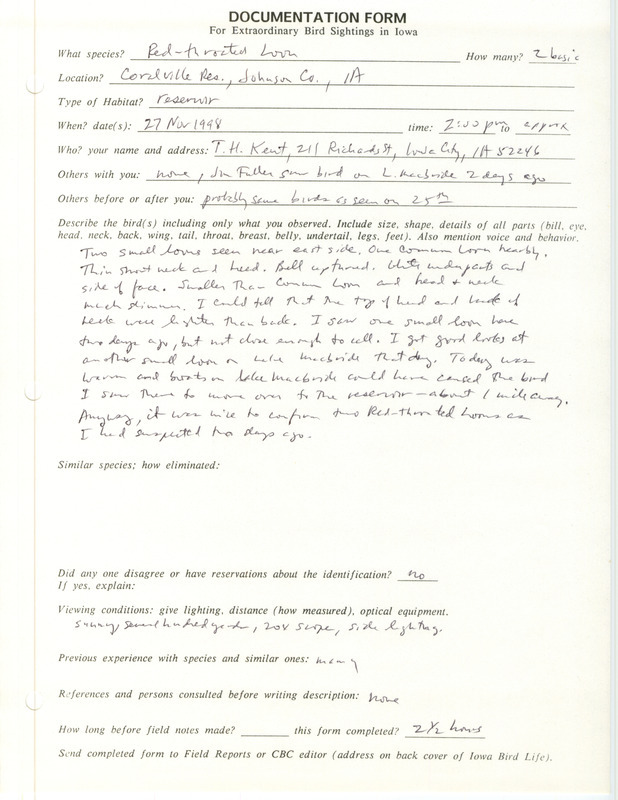 DOCUMENTATION FORM
For Extraordinary Bird Sightings in Iowa
What species? Red-throated Loon How many? 2 basic
Location? Coralville Res., Johnson Co., IA
Type of Habitat? reservoir
When? date(s): 27 Nov 1998 time: 2:00 pm to approx
Who? your name and address: T.H. Kent, 211 Richards St, Iowa City, IA 52246
Others with you: none, Jim Fuller saw bird on L. Macbride 2 days ago
Others before or after you: probably same birds as seen on 25th
Describe the bird(s) including only what you observed. Include size, shape, details of all parts (bill, eye,
head, neck, back, wing, tail, throat, breast, belly, undertail, legs, feet). Also mention voice and behavior.
Two small loons seen near east side. One Common Loon nearby.
Thin short neck and head. Bill upturned. White underparts and
side of face. Smaller than Common Loon and head & neck
much slimmer. I could tell that the top of head and back of
neck were lighter than back. I saw one small loon here
two days ago, but not close enough to call. I got good looks at
another small loon on Lake Macbride that day. Today was
warm and boats on Lake Macbride could have caused the bird
I saw there to move over to the reservoir - about 1 mile away.
Anyway, it was nice to confirm two Red-throated Loons as
I had suspected two days ago.
Similar species; how eliminated:
Did any one disagree or have reservations about the identification? no
If yes, explain:
Viewing conditions: give lighting, distance (how measured), optical equipment.
sunny, several hundred yards, 20x scope, side lighting.
Previous experience with species and similar ones: many
References and persons consulted before writing description: none
How long before field notes made? this form completed? 2 1/2 hours
Send completed form to Field Reports or CBC editor (address on back cover of Iowa Bird Life).